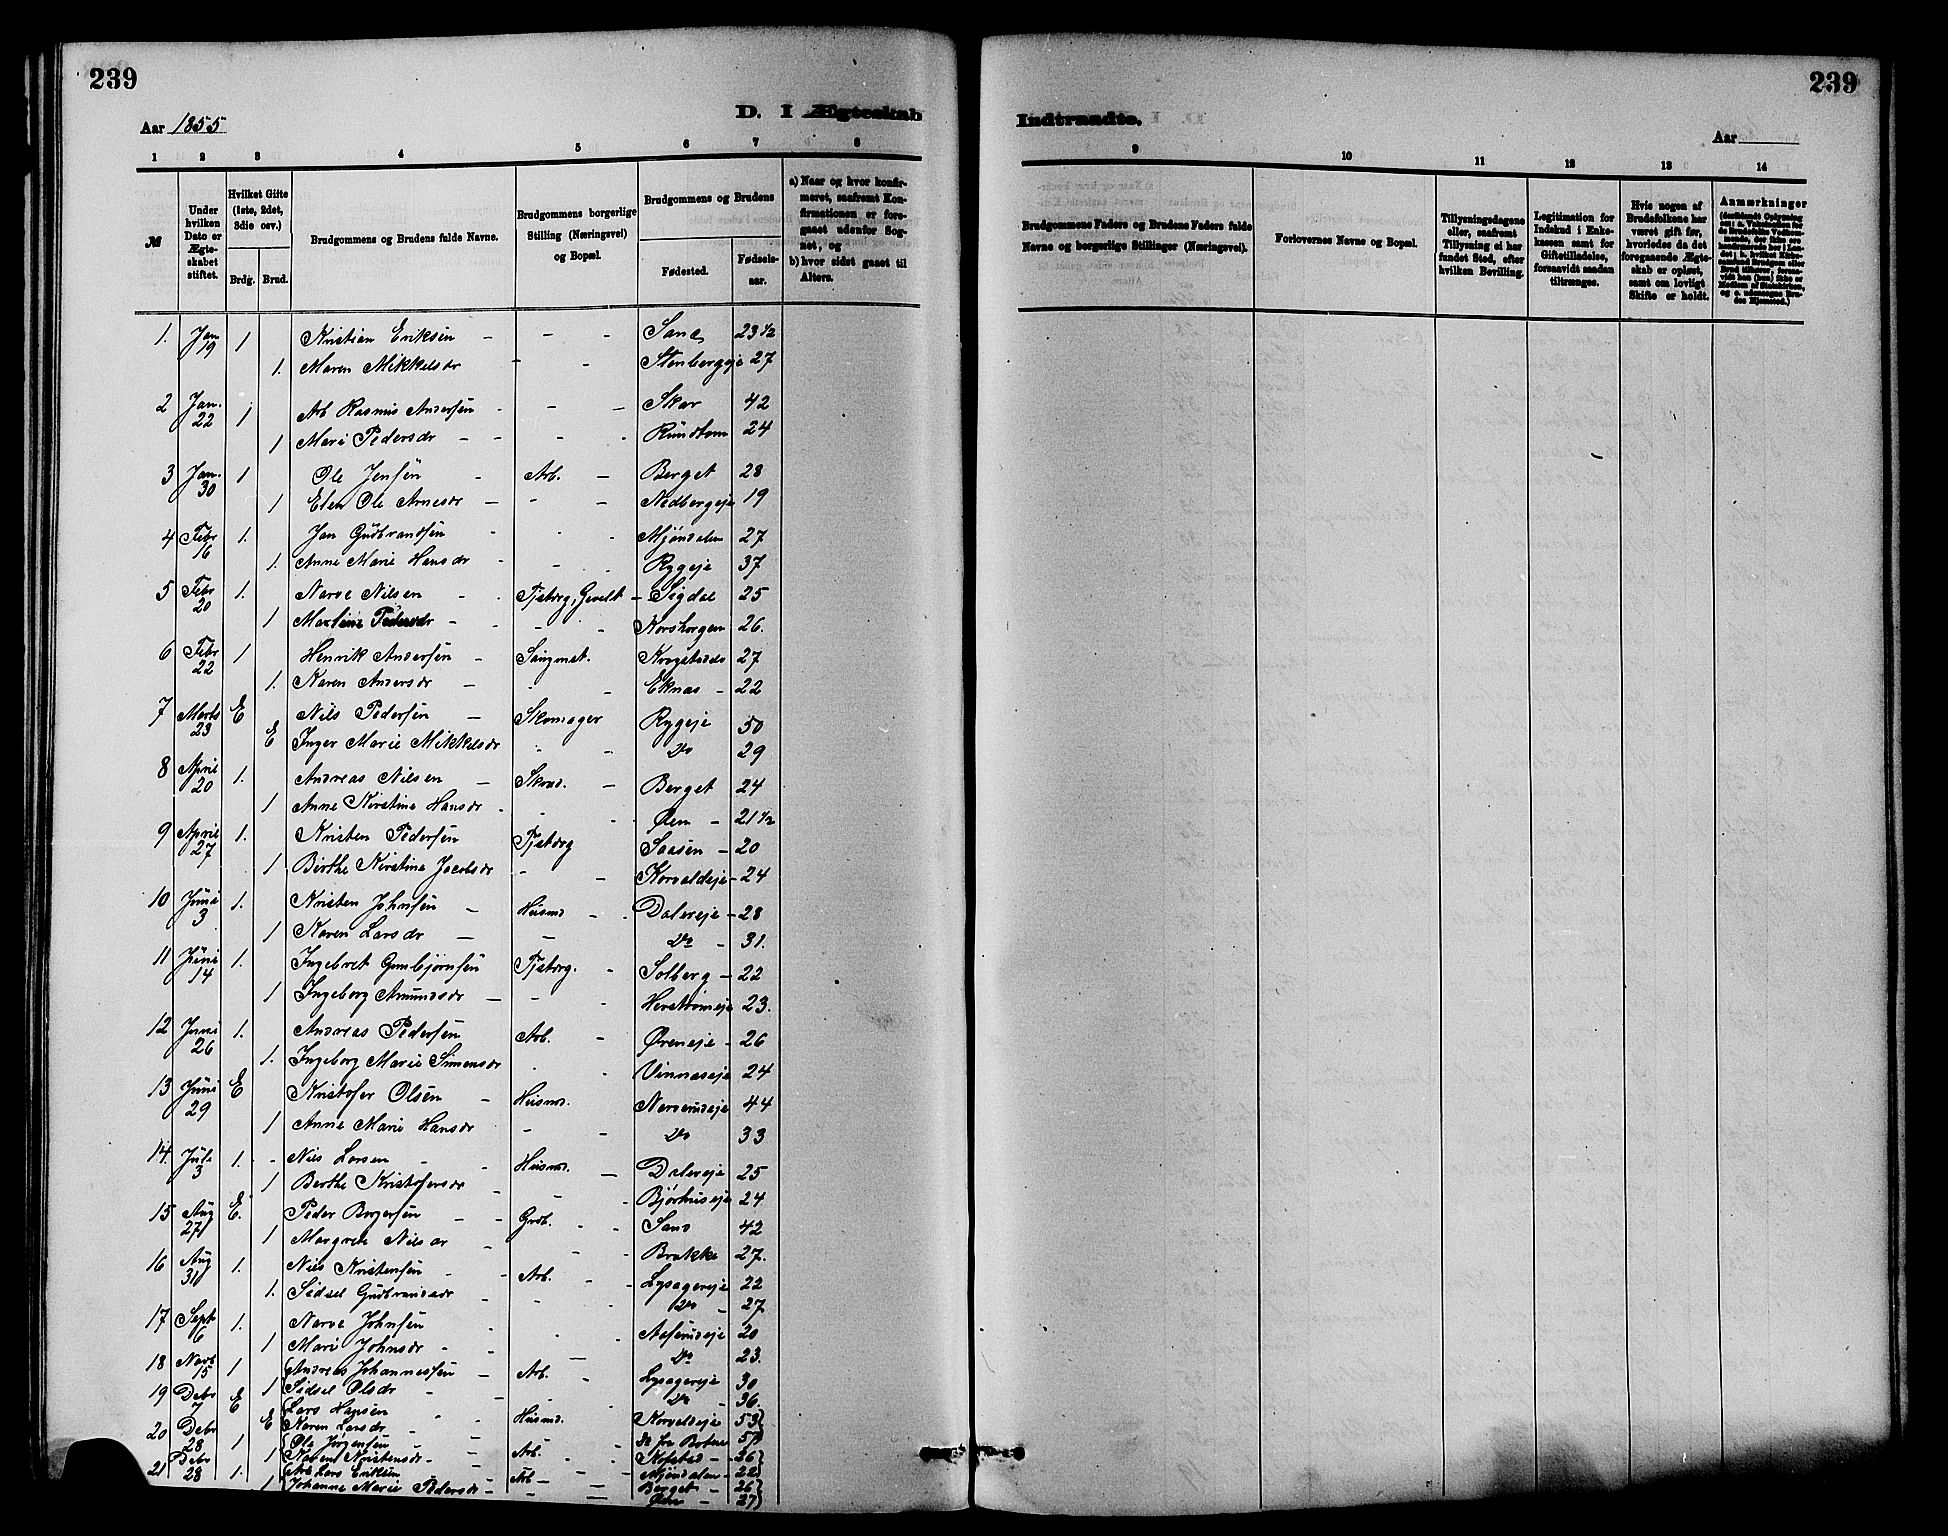 239
239
Aar 1855
D. I Ægteskab
Indtraadte.
Aar
1 2 3 4 5 6 7 8
9 10 11 12 13 14
№
Under hvilken Dato er Ægteskabet stiftet.
Hvilket Gifte (1ste, 2det, 3die osv.)
Brdg. Brud.
Brudgommens og Brudens fulde Navne.
Brudgommens borgerlige Stilling (Næringsvei) og Bopæl.
Brudgommens og Brudens
Fødested.
Fødselsaar.
a) Naar og hvor konfirmeret, saafremt Konfirmationen er foregaaet udenfor Sognet, og
b) hvor sidst gaaet til Alters.
Brudgommens Faders og Brudens Faders fulde Navne og borgerlige Stillinger (Næringsvei).
Forlovernes Navne og Bopæl.
Tillysningsdagene eller, saafremt Tillysning ei har fundet Sted, efter hvilken Bevilling.
Legitimation for Indskud i Enkekassen samt for Giftetilladelse, forsaavidt saadan tiltrænges.
Hvis nogen af Brudefolkene har været gift før, hvorledes da det foregaaende Ægteskab er opløst, samt om lovligt Skifte er holdt.
Anmærkninger
1. Jan 19 1 Kristian Eriksen - - - Sand 23 1/2
1. Maren Mikkelsdr - - Stenbergeje 27
2 Jan. 22 1 Arb Rasmus Andersen - - - Skar 42
1 Mari Pedersdr - - - - Rundtom 24
3 Jan. 30 1 Ole Jensen - Arb. - Berget 28
1 Elen Ole Arnesdr - - - Nedbergeje 19
4 Febr 16 1. Jan Gudbrandsen - - - Mjøndalen 27
1. Anne Marie Hansdr - - - Rygeje 37
5 Febr 20 1. Narve Nilsen - - Tjstkrg, Gevelt - Sigdal 25
1 Martine Pedersdr - - - Korshorgen 26.
6 Febr 22 1 Henrik Andersen - Saugmst. Krogstad 27
1. Karen Andersdr - - - Eknas - 22
7 Marts 23 E Nils Pedersen - Skomager Rygeje 50
E Inger Marie Mikkelsdr - - Do 29
8 April 20 1. Andreas Nilsen - Skrad. - Berget 24
1 Anne Kirstine Hansdr - - Øen - 21 1/2
9 April 27 1. Kristen Pedersen Tjstkrg Saasen - 20
1 Birthe Kirstine Jacobsdr - - Korvaldeje - 24
10 Juni 3 1. Kristen Johnsen - Husmd - - Dalereje - 28
1 Karen Larsdr - - Do - 31.
11 Juni 14 1. Ingebret Gunbjørnsen Tjstkrg. - Solberg - 22
1 Ingeborg Amundsdr - - - Herstrømeje 23.
12 Juni 26 1. Andreas Pedersen Arb. - Øreneje - 26
1. Ingeborg Marie Simensdr - - Vinnaseje 24
13 Juni 29 E Kristofer Olsen - Husmd. Narverudeje 44
1 Anne Marie Hansdr - - Do 33
14. Juli 3 1. - Nils Larsen - - Husmd. - Dalereje 25
1 Berthe Kristofersdr - - - Bjørkuseje 24
15 Aug 27 E. Peder Borgersen - - Grdb. - - Sand 42
1 Margrete Nilsdr - - - Brakke 27.
16 Aug 31 1. Nils Kristensen - - Arb. - - Lysagereje 22
1. Sidsel Gudbrandsdr - - - Do - 27
17 Sept 6 1. Narve Johnsen - - - Aaserudeje 20
1 Mari Johnsdr - - - Do 23.
18 Novb 15 1 Andreas Johannessen - Arb. - Lysagereje 30
1 Sidsel Olsdr - - - Do - 36.
19 Debr 7 E Lars Hansen - Husmd. Korvaldeje 53
E Karen Larsdr - - - do fra Botne 51
20 Debr 28 1 Ole Jørgensen - - Arb. - Kofstad - 26
1 Karen Kristensdr - - - Mjøndalen - 22
21 Debr 28 1. Arb Lars Eriksen Arb - Berget - 26
1 Johanne Marie Pedersdr - - - Øen - 27